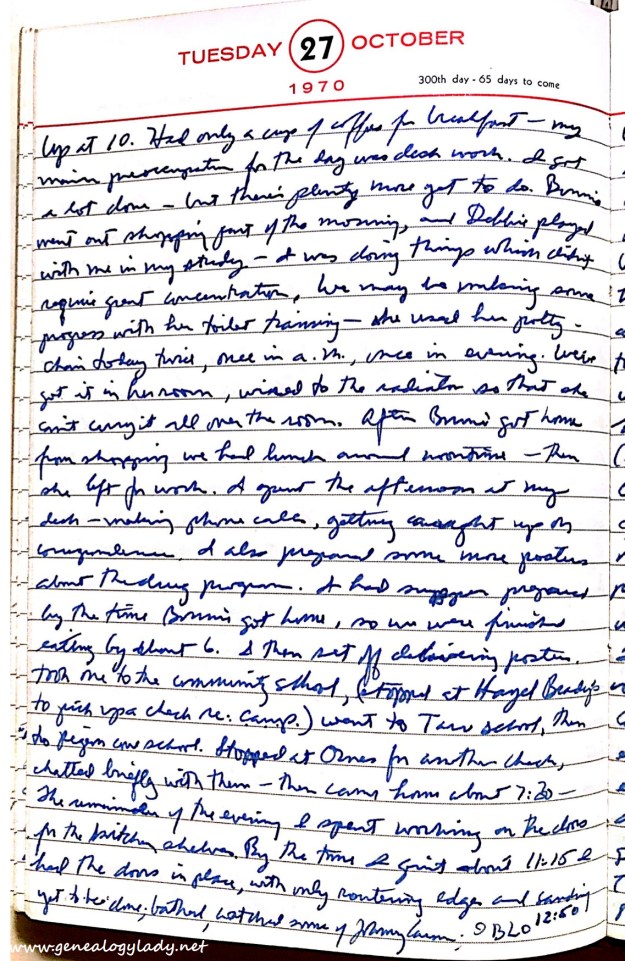 TUESDAY 27 OCTOBER
1970
300th day - 65 days to come
Up at 10. Had only a cup of coffee for breakfast — my
main preoccupation for the day was desk work. I got
a lot done — but there's plenty more yet to do. Bonnie
went out shopping part of the morning, and Debbie played
with me in my study — I was doing things which didn't
require great concentration. We may be making some
progress with her toilet training — she used her potty-
chair today twice, once in a.m., once in evening. We've
got it in her room, wired to the radiator so that she
can't carry it all over the room. After Bonnie got home
from shopping we had lunch around noontime — then
she left for work. I spent the afternoon at my
desk — making phone calls, getting caught up on
correspondence. I also prepared some more posters
about the drug program. I had supper prepared
by the time Bonnie got home, so we were finished
eating by about 6. I then set off delivering posters.
took one to the community school, (stopped at Hazel Beady's
to pick up a check re: camp.) went to school, then
to school. Stopped at Ornes for another check,
chatted briefly with them — then came home about 7:30 —
The remainder of the evening I spent working on the doors
for the kitchen shelves. By the time I quit about 11:15 I
had the doors in place, with only routering edges and sanding
yet to be done; bathed, watched some of Johnny Carson; 12:50
www.genealogylady.net